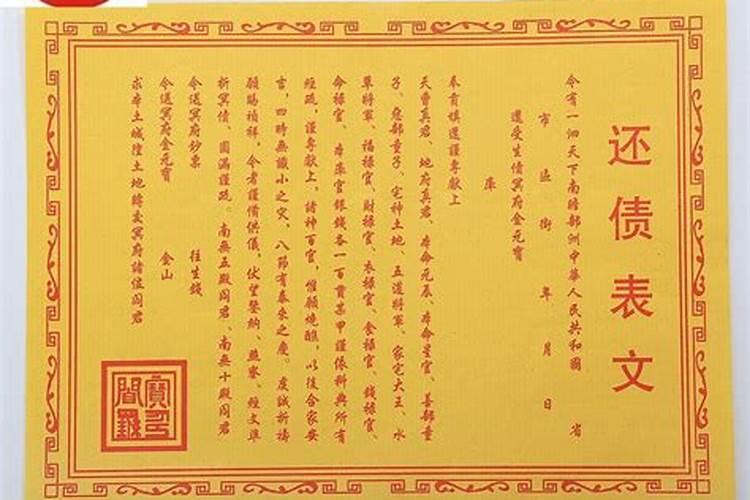 还债表文
今有一泗天下南瞻部洲中華人民共和國 省
市 區 街 年 月 日
還受生債冥府金元寶
庫
奉有填還謹專獻上
天曹真君、地府真君、本命元辰、本命星官、善部童
子、惡部童子、宅神土地、五道將軍、家宅大王、水
草將軍、福禄官、財禄官、衣禄官、食禄官、錢禄官、
命禄官、本庫官銀錢各一百貫某甲謹依科典所有
經疏，謹專獻上，諸神百官，惟願燒醮，以後合家安
吉，四時無讖小之灾，八節有泰來之慶。虔誠祈禱
願賜禎祥，今者謹備供儀，伏望鑒納、燕寥、經文準
折冥債、圓滿謹疏。南無五殿阎君、南無十殿阎君
今送冥府鈔票 往生錢
今送冥府金元寶 金山
求本土城隍土地轉交冥府諸位阎君